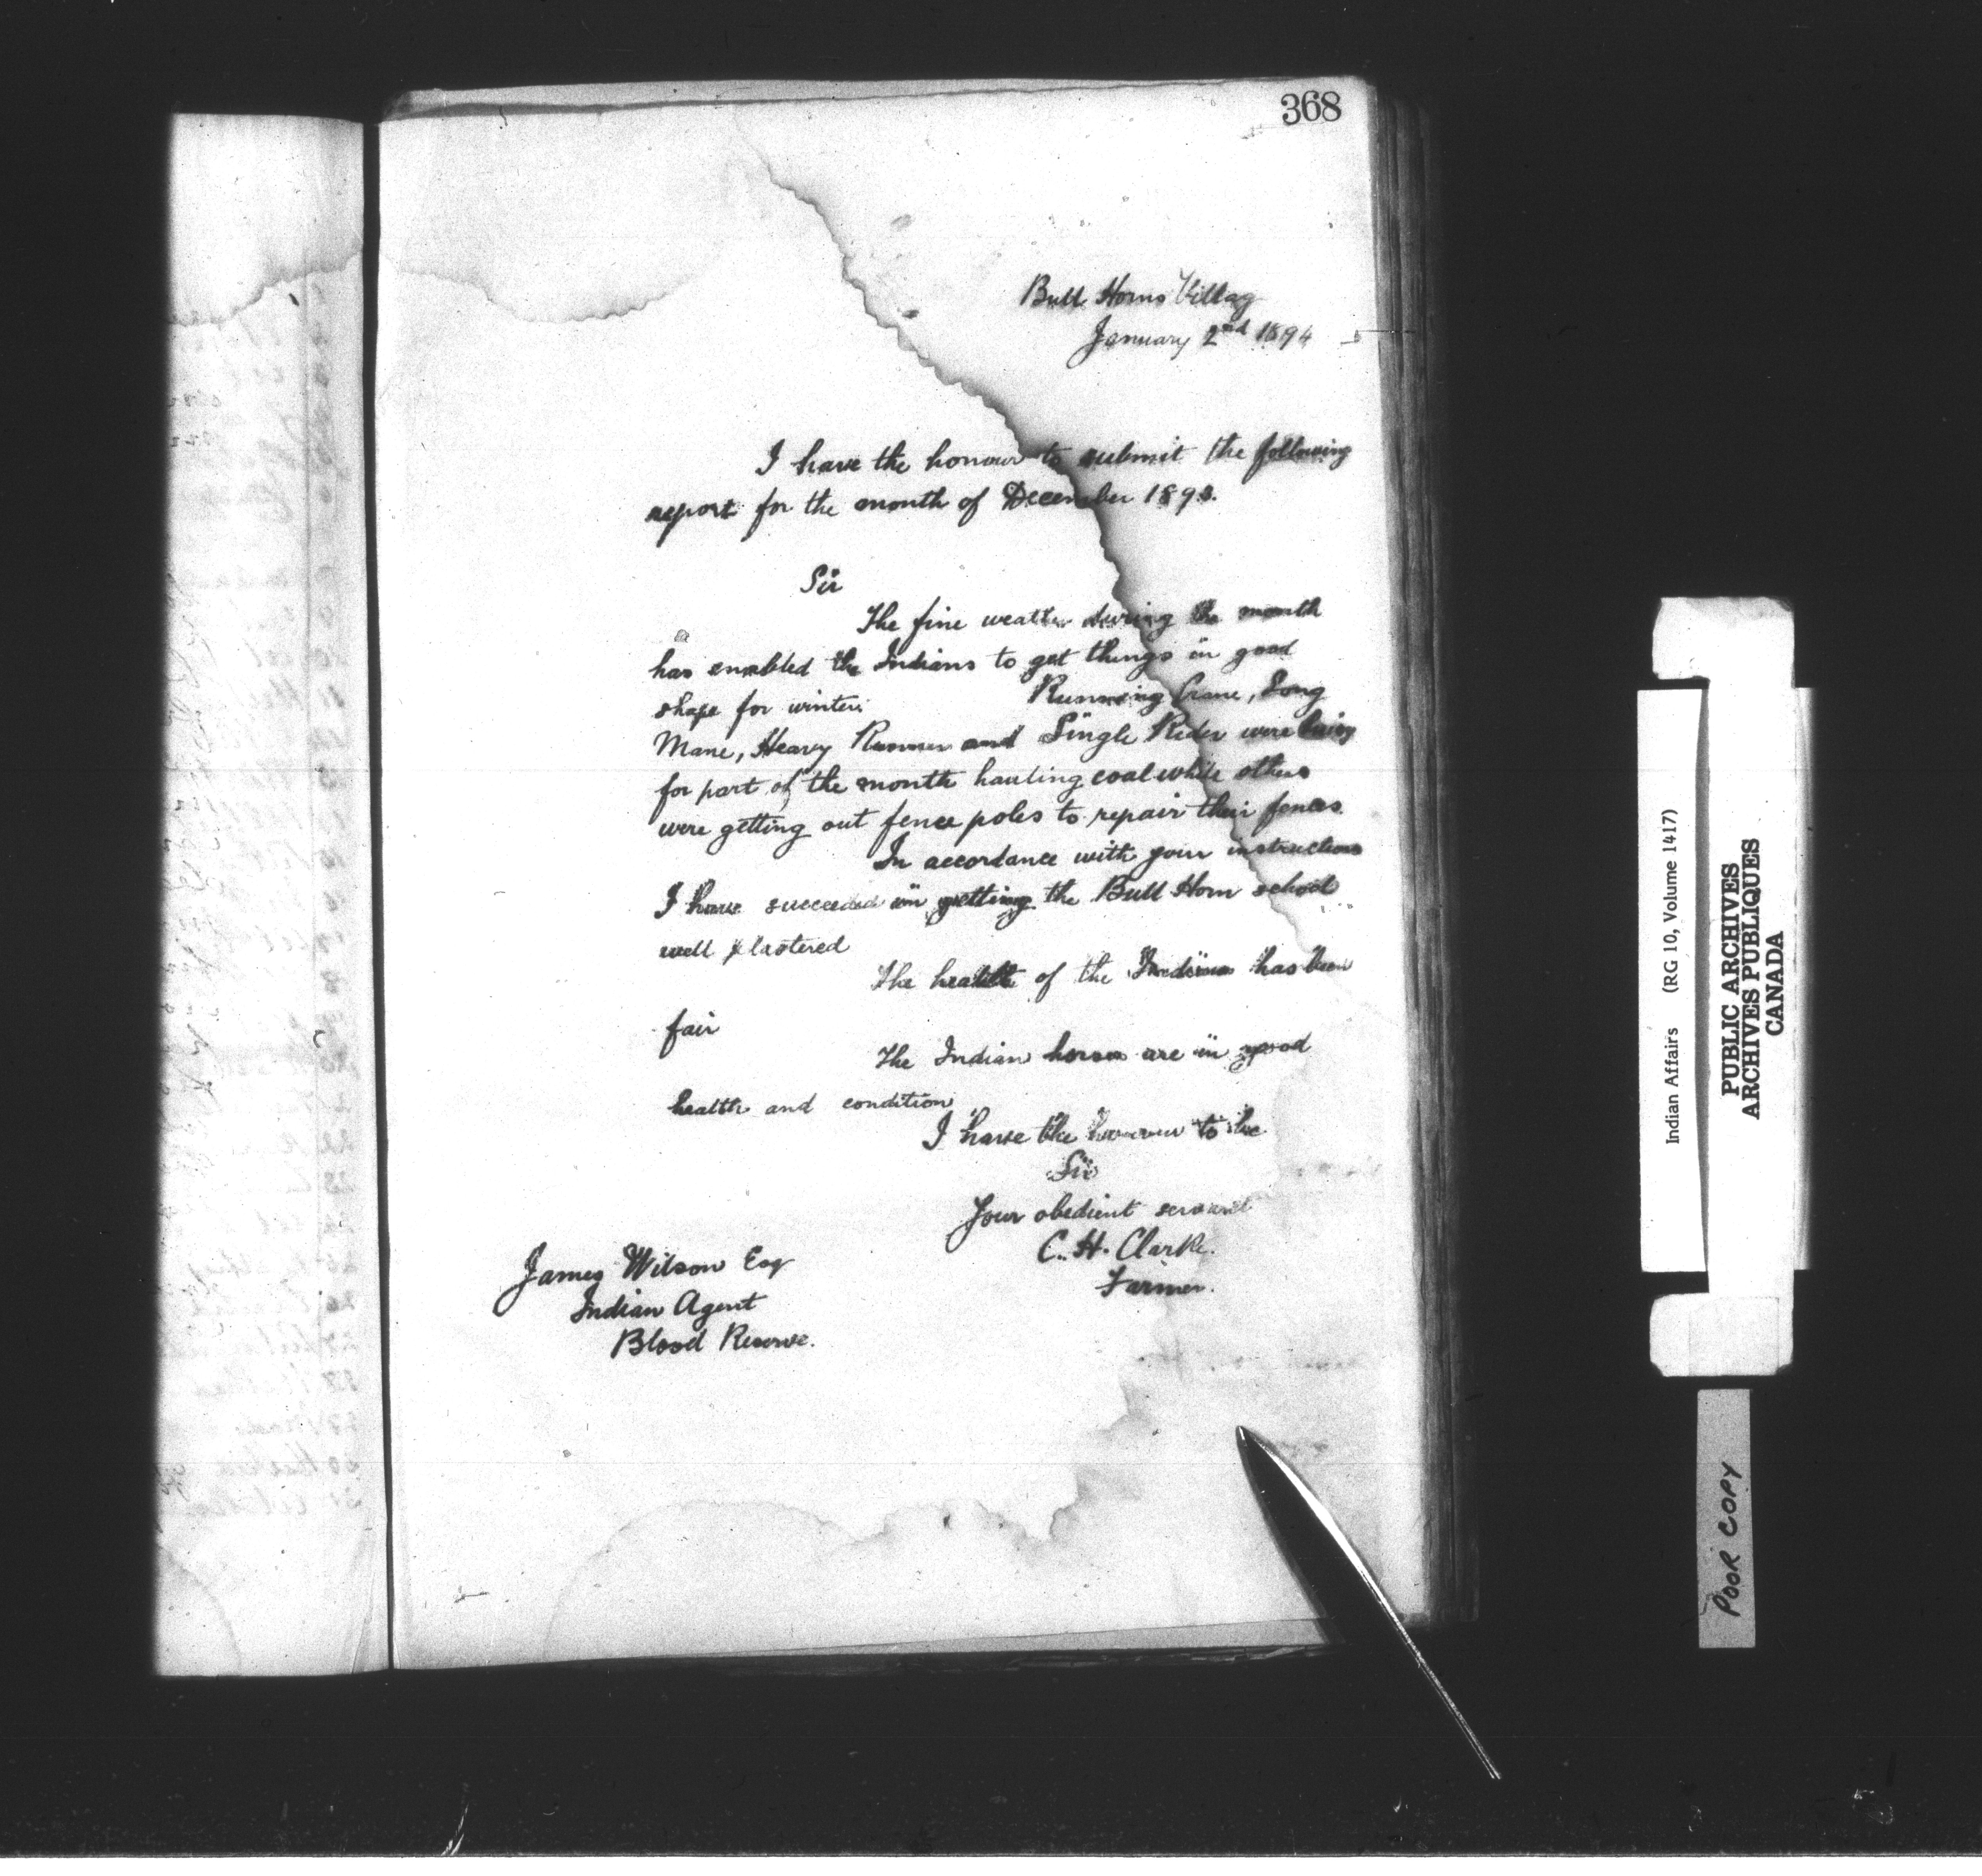 368
Bull Horns Villag
January 2nd 1894
I have the honour to submit the following
report for the month of December 1893.
Sir
The fine weather during the month
has enabled the Indians to get things in good
shape for winter. Running Crane, Long
Mane, Heavy Runner and Single Rider were busy
for part of the month hauling coal while others
were getting out fence poles to repair their fences
In accordance with your instructions
I have succeeded in getting the Bull Horn school
well plastered
The health of the Indians has been
fair
The Indian horses are in good
health and condition
I have the honour to be
Sir
Your obedient servant
C. H. Clarke.
Farmer.
James Wilson Esq
Indian Agent
Blood Reserve.
Indian Affairs (RG 10, Volume 1417)
PUBLIC ARCHIVES
ARCHIVES PUBLIQUES
CANADA
POOR COPY